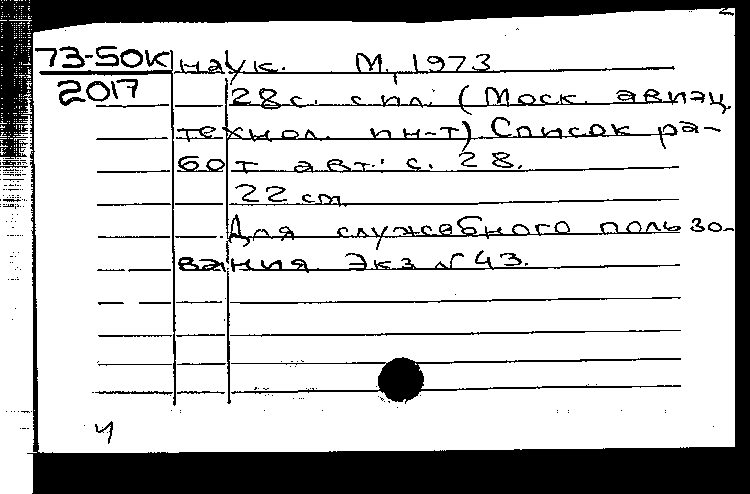 73-50К наук. М., 1973
2017 28 с. с ил. (Моск. авиац.
технол. ин-т) Список ра-
бот авт.: с. 28.
22 см
Для служебного пользо-
вания. Экз. № 43.